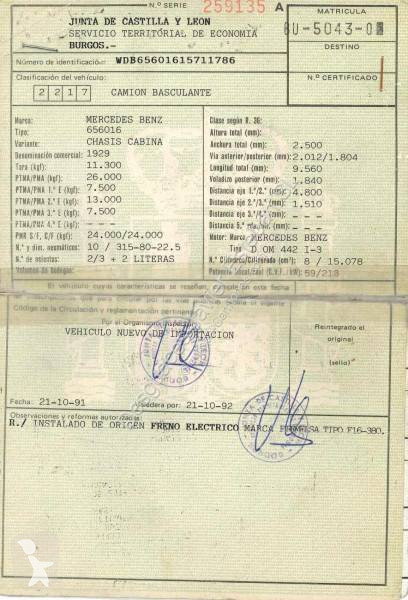 N.º SERIE 259135 A
JUNTA DE CASTILLA Y LEON
SERVICIO TERRITÓRIAL DE ECONOMIA
BURGOS.-
MATRICULA
BU-5043-O
DESTINO
Número de identificación: WDB65601615711786
N.º CERTIFICADO
Clasificación del vehículo:
2217 CAMION BASCULANTE
Marca: MERCEDES BENZ
Tipo: 656016
Variante: CHASIS CABINA
Denominación comercial: 1929
Tara (kgf): 11.300
PTMA/PMA (kgf): 26.000
PTMA/PMA 1.º E (kgf): 7.500
PTMA/PMA 2.º E (kgf): 13.000
PTMA/PMA 3.º E (kgf): 7.500
PTMA/PMA 4.º E (kgf): - - -
PMR S/F, C/F (kgf): 24.000/24.000
N.º y dim. neumáticos: 10 / 315-80-22.5
N.º de asientos: 2/3 + 2 LITERAS
Volumen de bodegas:
Clase según R. 36:
Altura total (mm):
Anchura total (mm): 2.500
Vía anterior/posterior (mm): 2.012/1.804
Longitud total (mm): 9.560
Voladizo posterior (mm): 1.840
Distancia eje 1.º/2.º (mm): 4.800
Distancia eje 2.º/3.º (mm): 1.510
Distancia eje 3.º/4.º (mm): - -
Distancia 5.ª (mm): - -
Motor: Marca MERCEDES BENZ
Tipo D.OM 442 I-3
N.º Cilindros/Cilindrada (cm3): 8 / 15.078
Potencia fiscal/real (C.V.F./kW) 59/213
El vehículo cuyas características se reseñan, cumple en esta fecha
Código de la Circulación y reglamentación pertinente.
Por el Organismo Inspector
VEHICULO NUEVO DE IMPORTACION
Reintegrado el
original
(sello)
Fecha: 21-10-91
Valedera por: 21-10-92
Observaciones y reformas autorizadas:
R./ INSTALADO DE ORIGEN FRENO ELECTRICO MARCA TIPO F16-380.